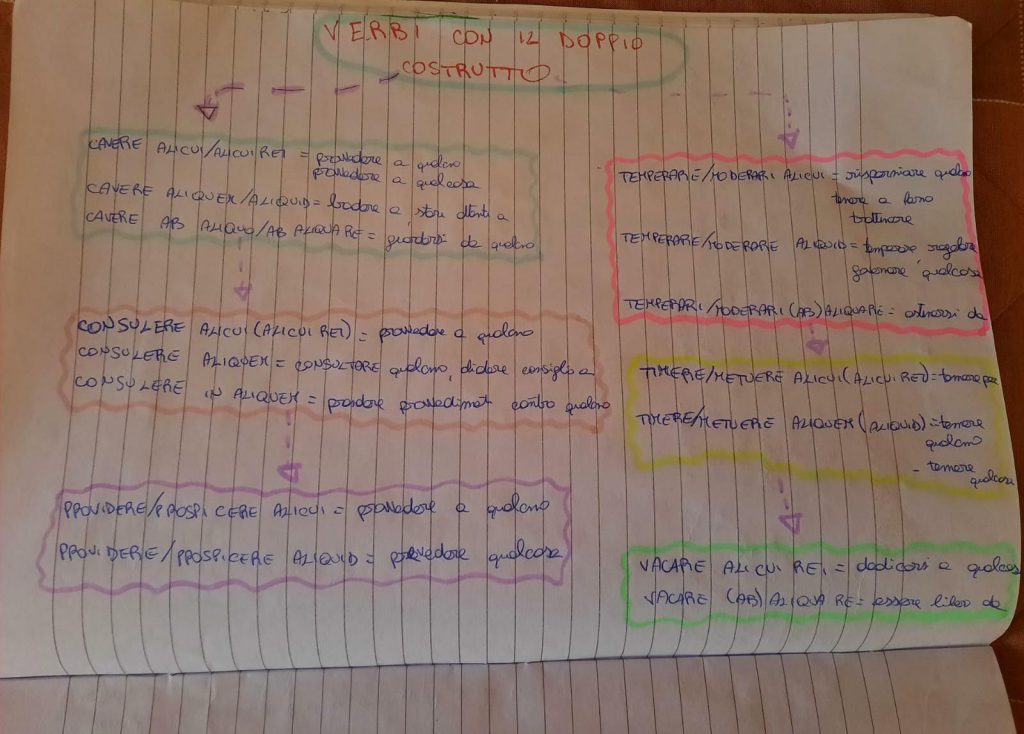 VERBI CON IL DOPPIO
COSTRUTTO
CAVERE ALICUI/ALICUI REI = provvedere a qualcuno
provvedere a qualcosa
CAVERE ALIQUEM/ALIQUID = badare a stare attenti a
CAVERE AB ALIQUO/AB ALIQUA RE = guardarsi da qualcuno
CONSULERE ALICUI (ALICUI REI) = provvedere a qualcuno
CONSULERE ALIQUEM = CONSULTARE qualcuno, chiedere consiglio a
CONSULERE IN ALIQUEM = prendere provvedimenti contro qualcuno
PROVIDERE/PROSPICERE ALICUI = provvedere a qualcuno
PROVIDERE/PROSPICERE ALIQUID = prevedere qualcosa
TEMPERARE/MODERARI ALICUI = risparmiare qualcuno
tenere a freno
trattenere
TEMPERARE/MODERARE ALIQUID = temperare regolare
governare qualcosa
TEMPERARI/MODERARI (AB) ALIQUA RE = astenersi da
TIMERE/METUERE ALICUI (ALICUI REI) = temere per
TIMERE/METUERE ALIQUEM (ALIQUID) = temere
qualcuno
- temere
qualcosa
VACARE ALICUI REI = dedicarsi a qualcosa
VACARE (AB) ALIQUA RE = essere libero da